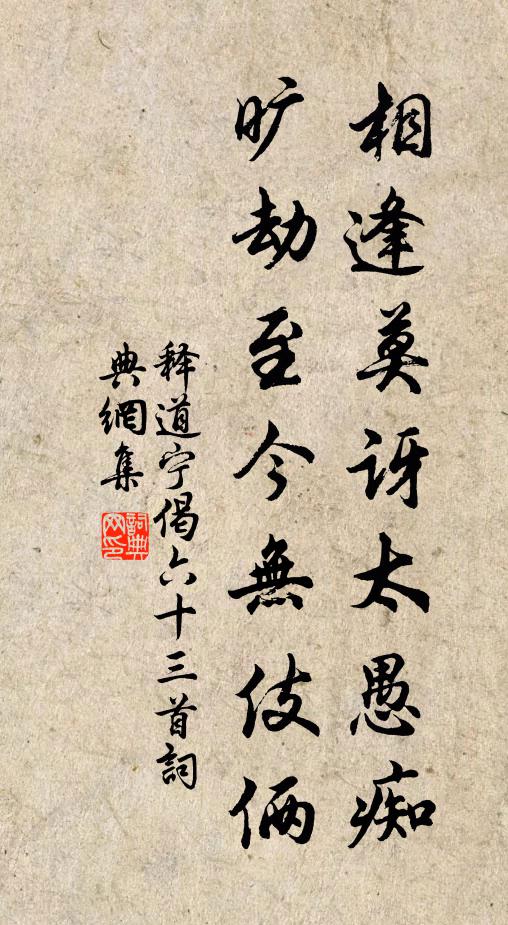 相逢莫讶太愚痴
旷劫至今無伎俩
释道宁偈六十三首詞
典網集
詞典网印